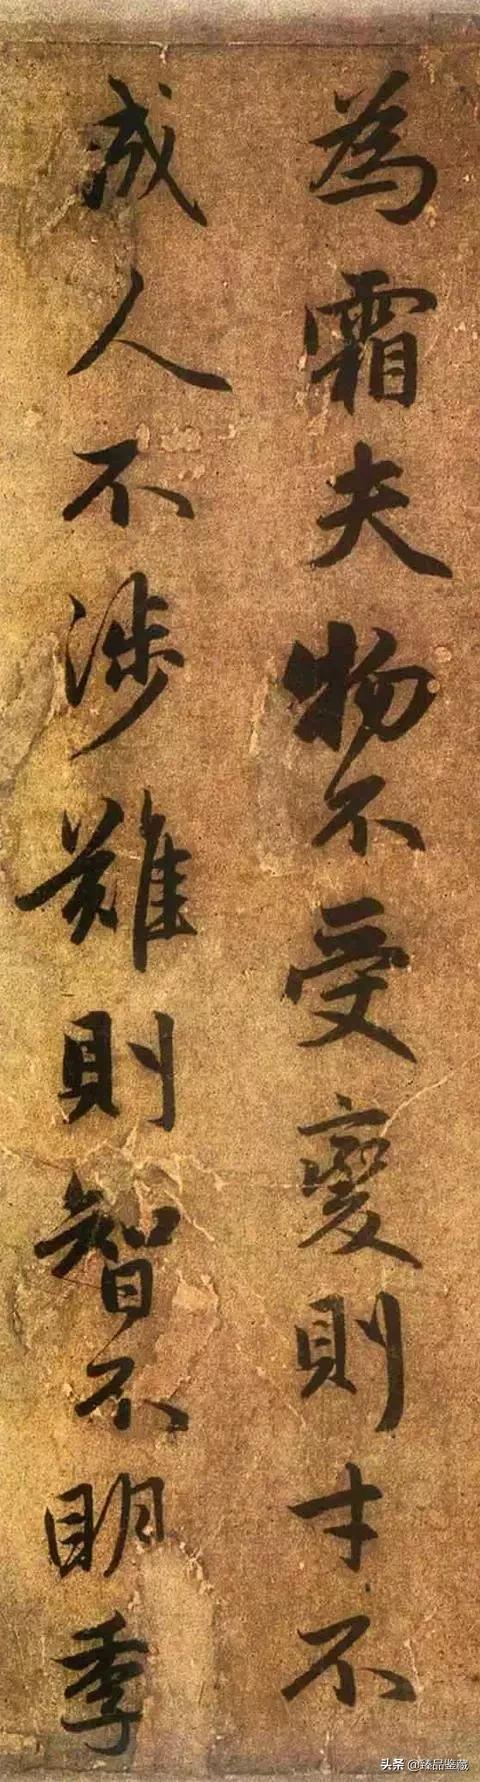 為霜夫物不受變則才不
成人不涉難則智不明季
头条 @臻品鉴藏